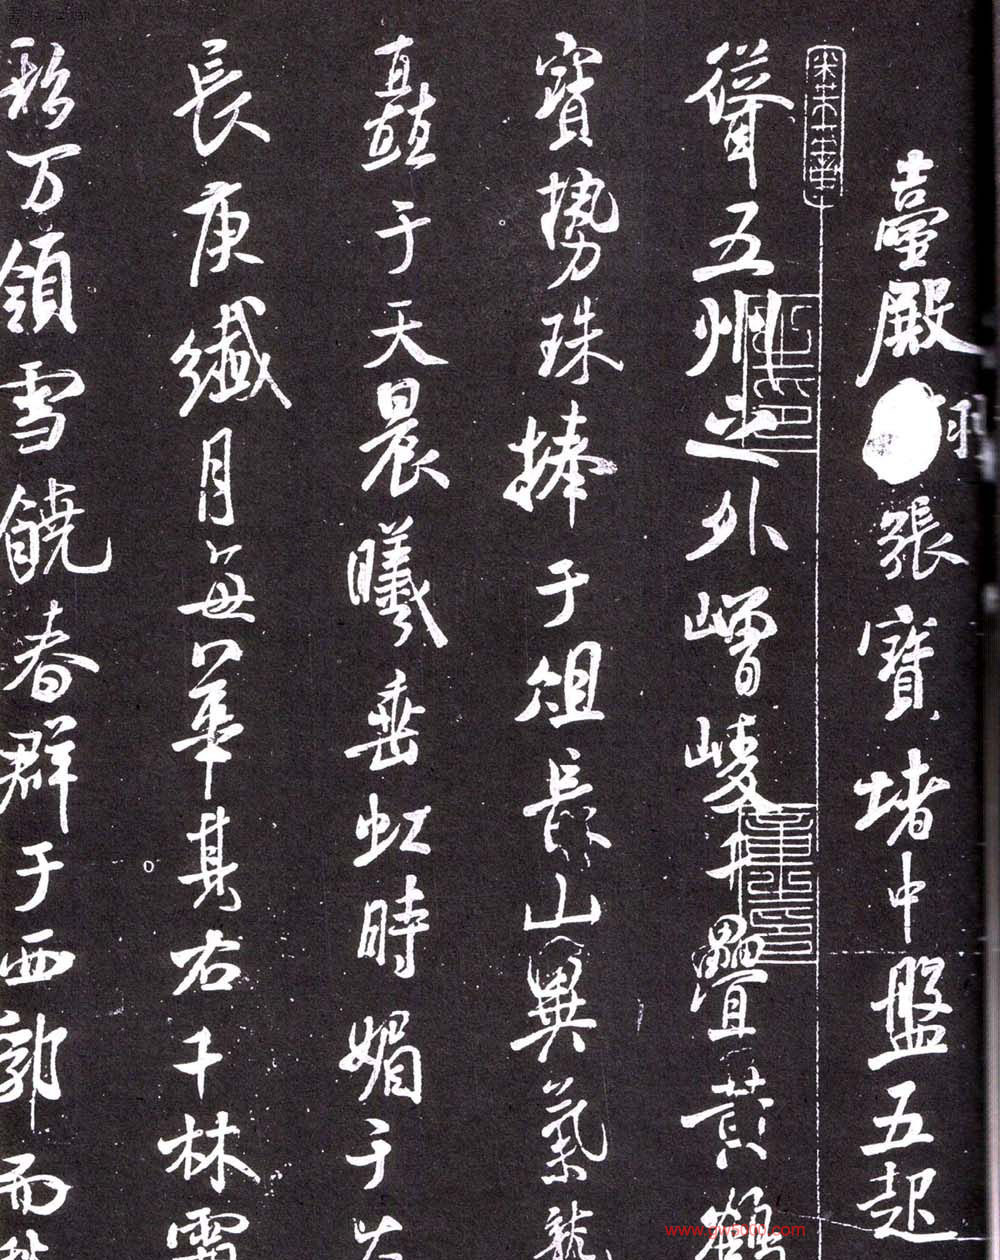 臺殿羽張寶堵中盤五起
聳五州之外嶒崚千疊黃鶴
寶勢珠捧于俎長山異氣龍
矗于天晨曦垂虹時媚于
長庚纖月每華其右千林霜
彩万嶺雪饒春群于西郭而
www.gw8000.com